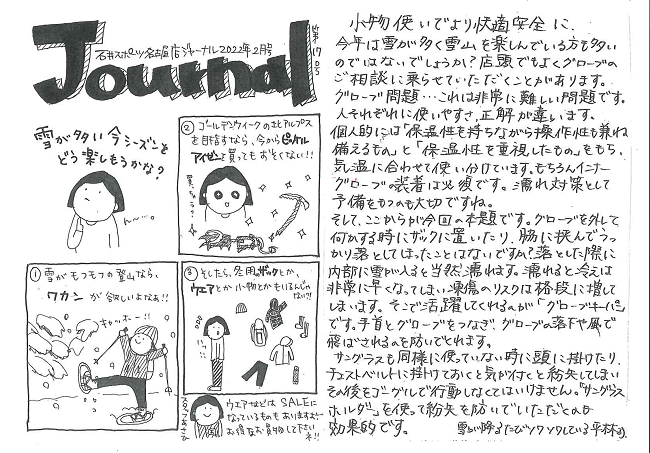 石井スポーツ名古屋店ジャーナル2022年2月号
Journal
雪が多い今シーズンを
どう楽しもうかな?
ん〜…。
① 雪がモフモフの登山なら、
ワカンが欲しいよなぁ!!
キャッホー!!
② ゴールデンウイークの北アルプス
を目指すなら、今からピッケル
アイゼンを買ってもおそくない!!
買っちゃう?
③ そしたら、冬用ザックとか、
ウエアとか小物とかもいるんじゃ
ない?!!
ウエアなどは SALEに
なっているものもありますよ〜
お得なお買物して下さい
ネ!!
小物使いでより快適安全に。
今年は雪が多く雪山を楽しんでいる方も多い
のではないでしょうか?店頭でもよくグローブの
ご相談に乗らせていただくことがあります。
グローブ問題…これは非常に難しい問題です。
人それぞれに使いやすさ、正解が違います。
個人的には「保温性を持ちながら操作性も兼ね
備えるもの」と「保温性を重視したもの」をもち、
気温に合わせて使い分けています。もちろんインナー
グローブの装着は必須です。濡れ対策として
予備をもつのも大切ですね。
そして、ここからが今回の本題です。グローブを外して
何かする時にザックに置いたり、脇に挟んでうっ
かり落としてしまったことはないですか?落とした際に
内部に雪が入ると当然濡れます。濡れると冷えは
非常に早くなってしまい凍傷のリスクは格段に増して
しまいます。そこで活躍してくれるのが「グローブキーパー」
です。手首とグローブをつなぎ、グローブの落下や風で
飛ばされるのを防いでくれます。
サングラスも同様に使っていない時に頭に掛けたり、
チェストベルトに掛けておくと気が付くと紛失してしまい
その後をゴーグルで行動しなくてはいけません。"サングラス
ホルダー"を使って紛失を防いでいただくのが
効果的です。
雪が降るたびソワソワしている平林